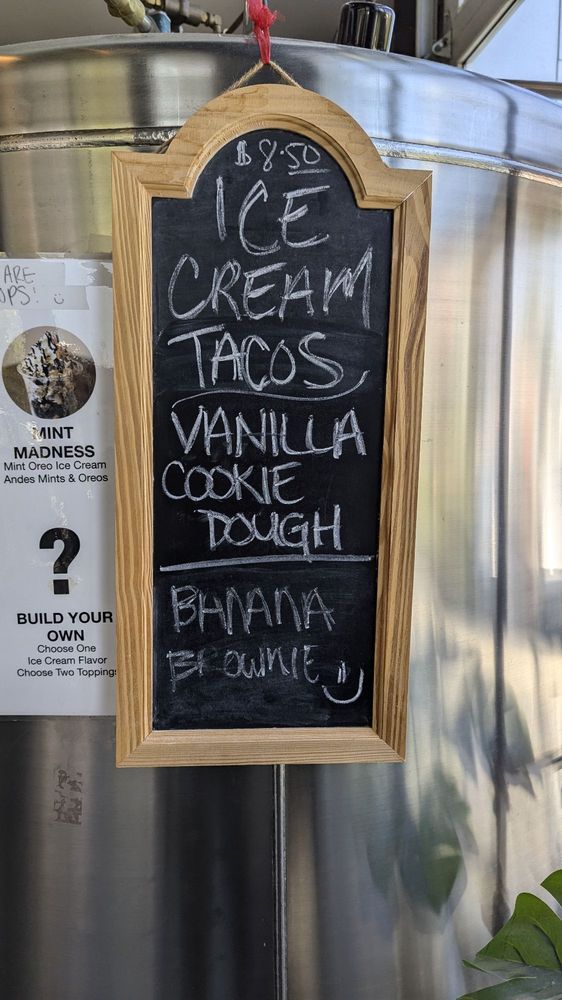 $8.50
ICE
CREAM
TACOS
VANILLA
COOKIE
DOUGH
BANANA
BROWNIE
ARE
MINT
MADNESS
Mint Oreo Ice Cream
Andes Mints & Oreos
?
BUILD YOUR
OWN
Choose One
Ice Cream Flavor
Choose Two Topping